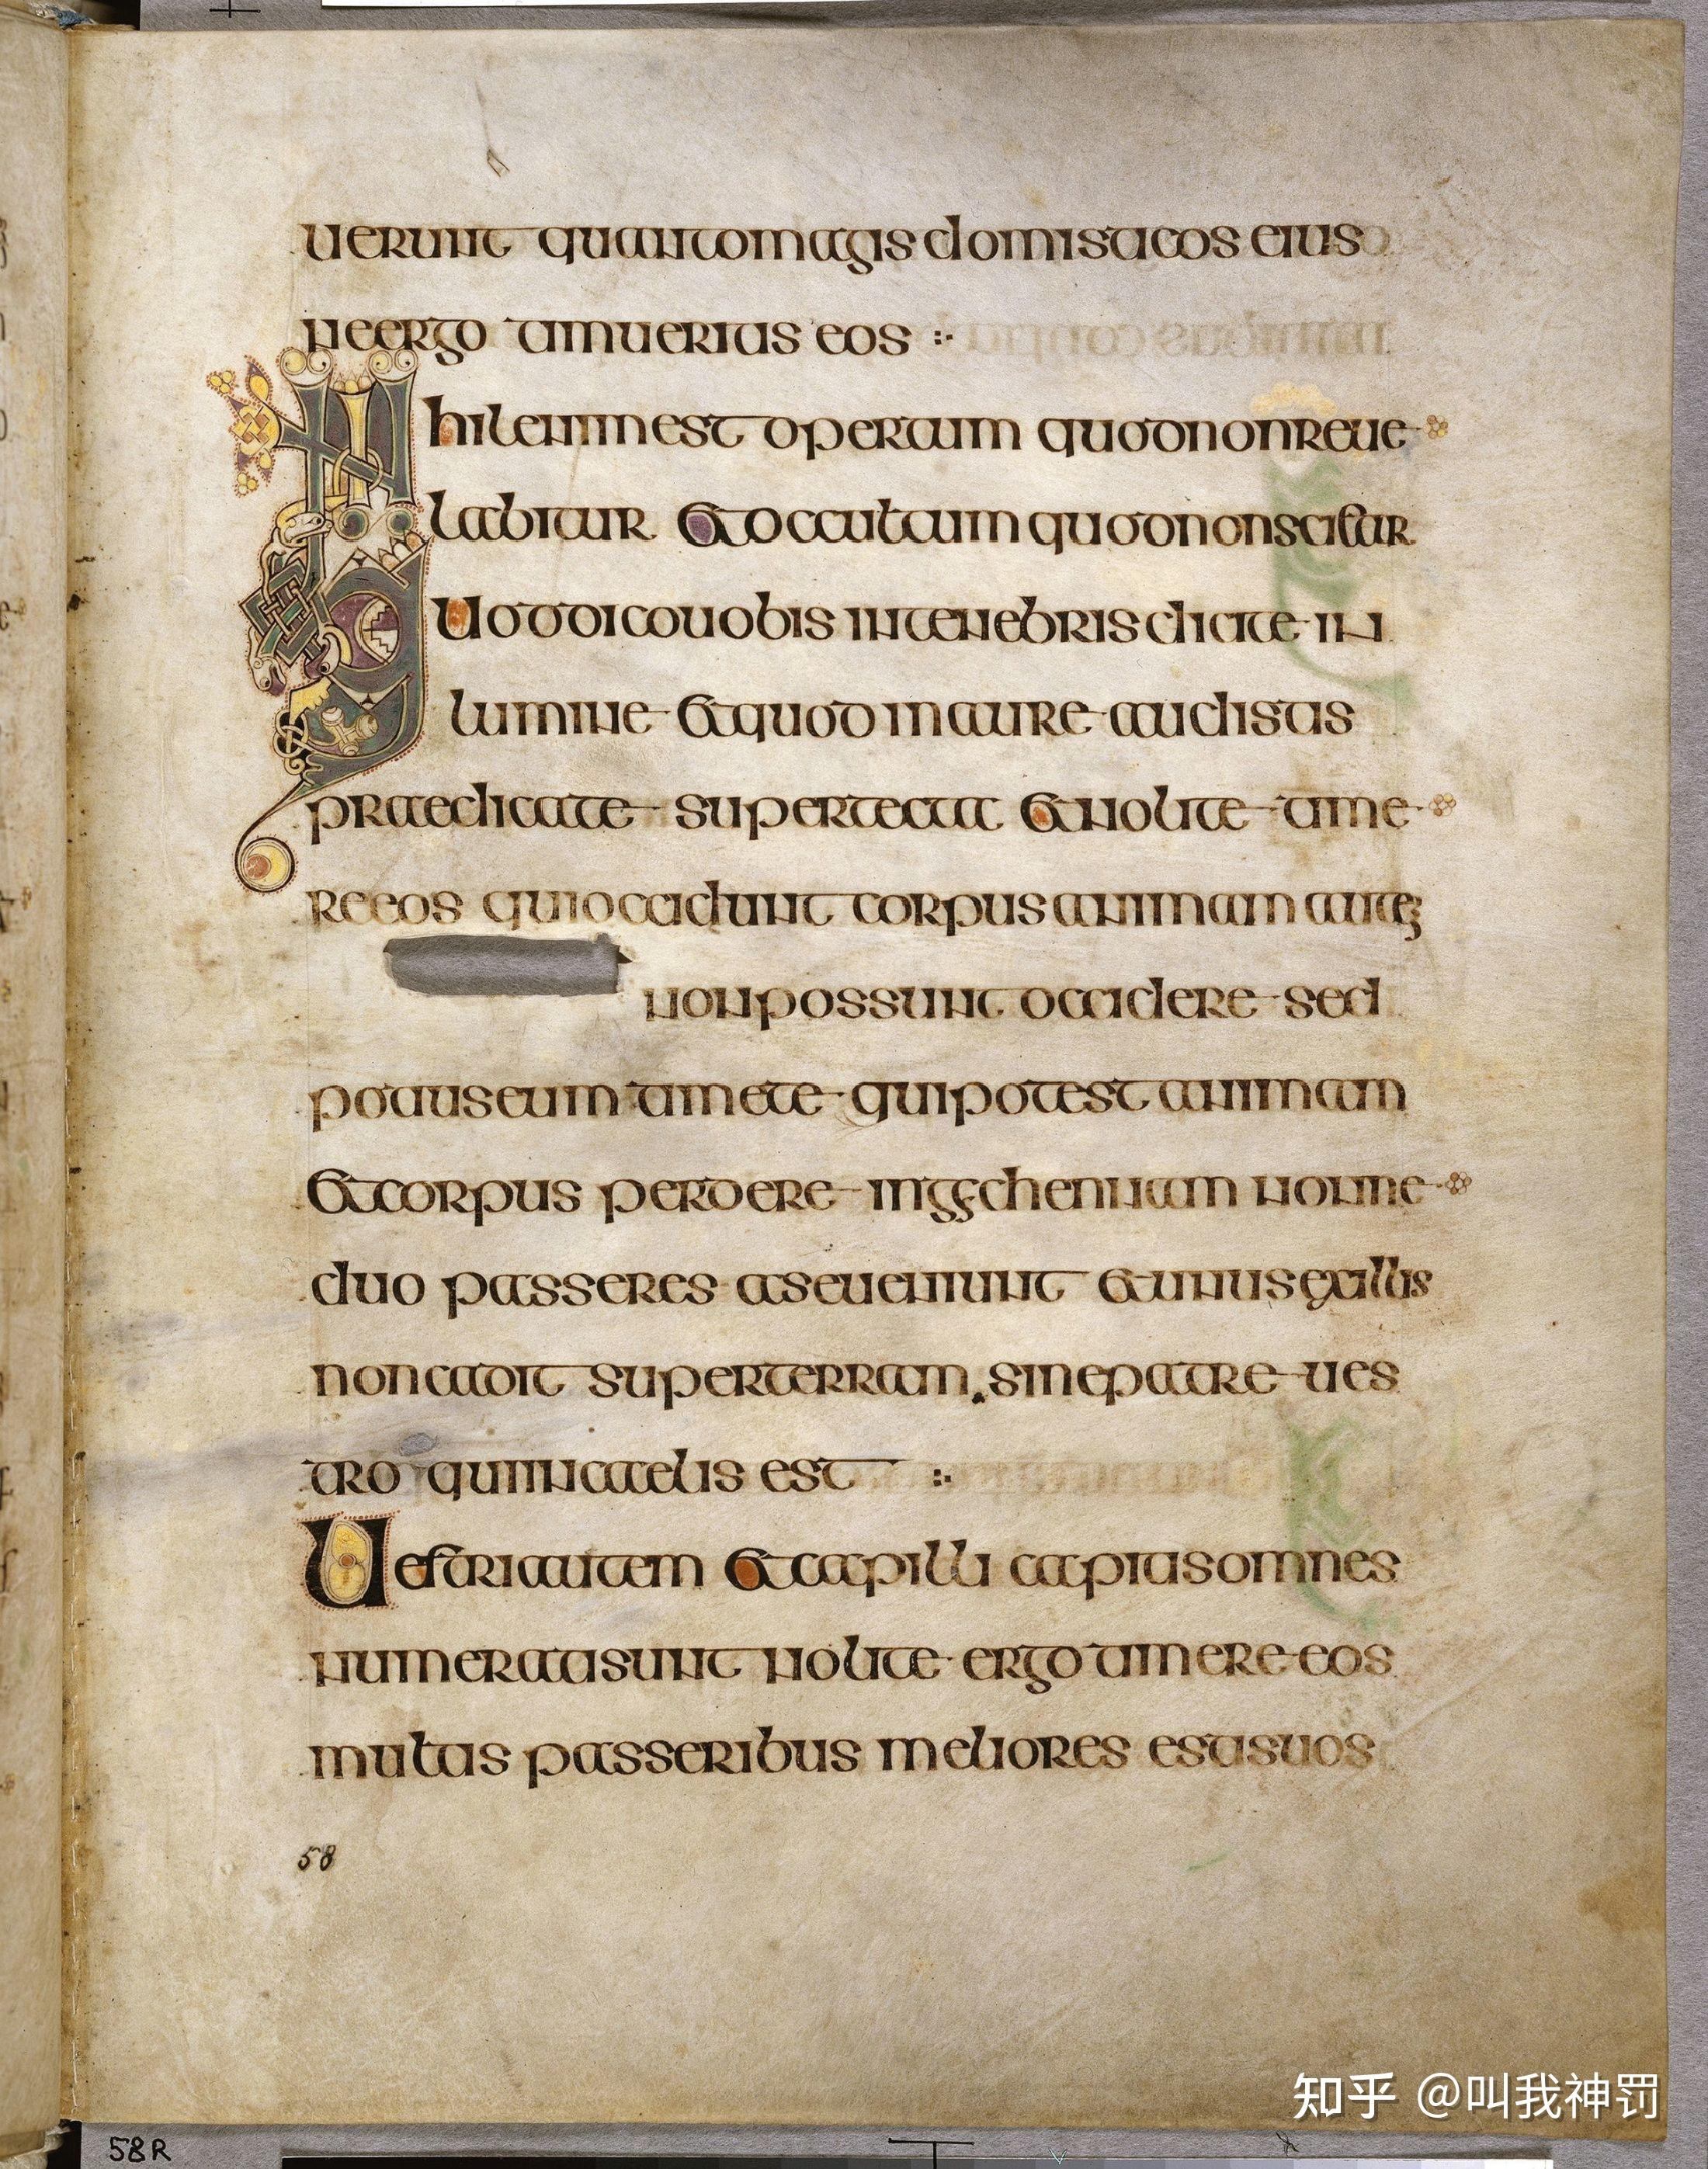 uerunt quantomagis domisticos eius
neergo timueritis eos :·
Nihilenim est opertum quod nonreue
labitur et occultum quod nonscietur
Quod dico uobis intenebris dicite in
lumine et quod in aure audistis
praedicate super tecta et nolite time
re eos qui occidunt corpus animam autem
non possunt occidere sed
potius eum timete qui potest animam
et corpus perdere ingechennam nonne
duo passeres aseueniunt et unus exillis
non cadit super terram. sine patre ues
tro qui incaelis est :·
Uestri autem et capilli capitis omnes
numerati sunt nolite ergo timere eos
multis passeribus meliores estis uos
58
58R
知乎 @叫我神罚